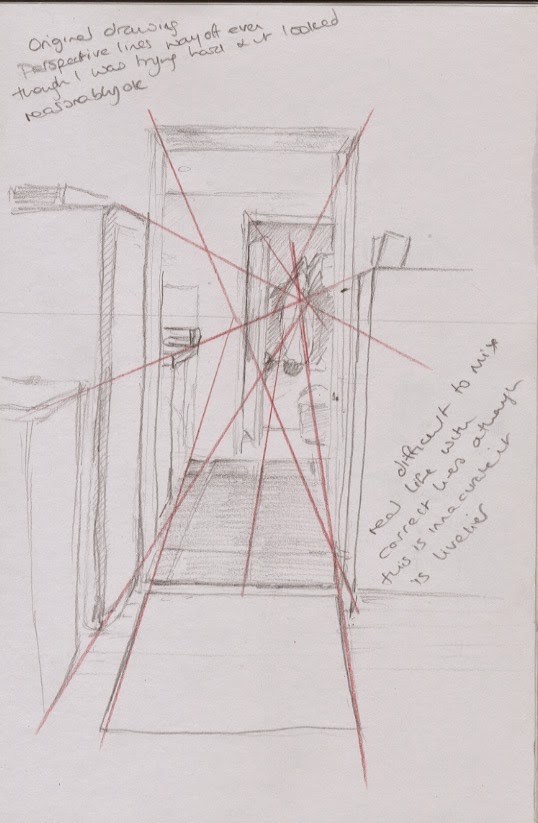 Original drawing
Perspective lines way off even
though I was trying hard & it looked
reasonably ok
difficult to mix
real life with
correct lines athough
this is innacurate it
is livelier